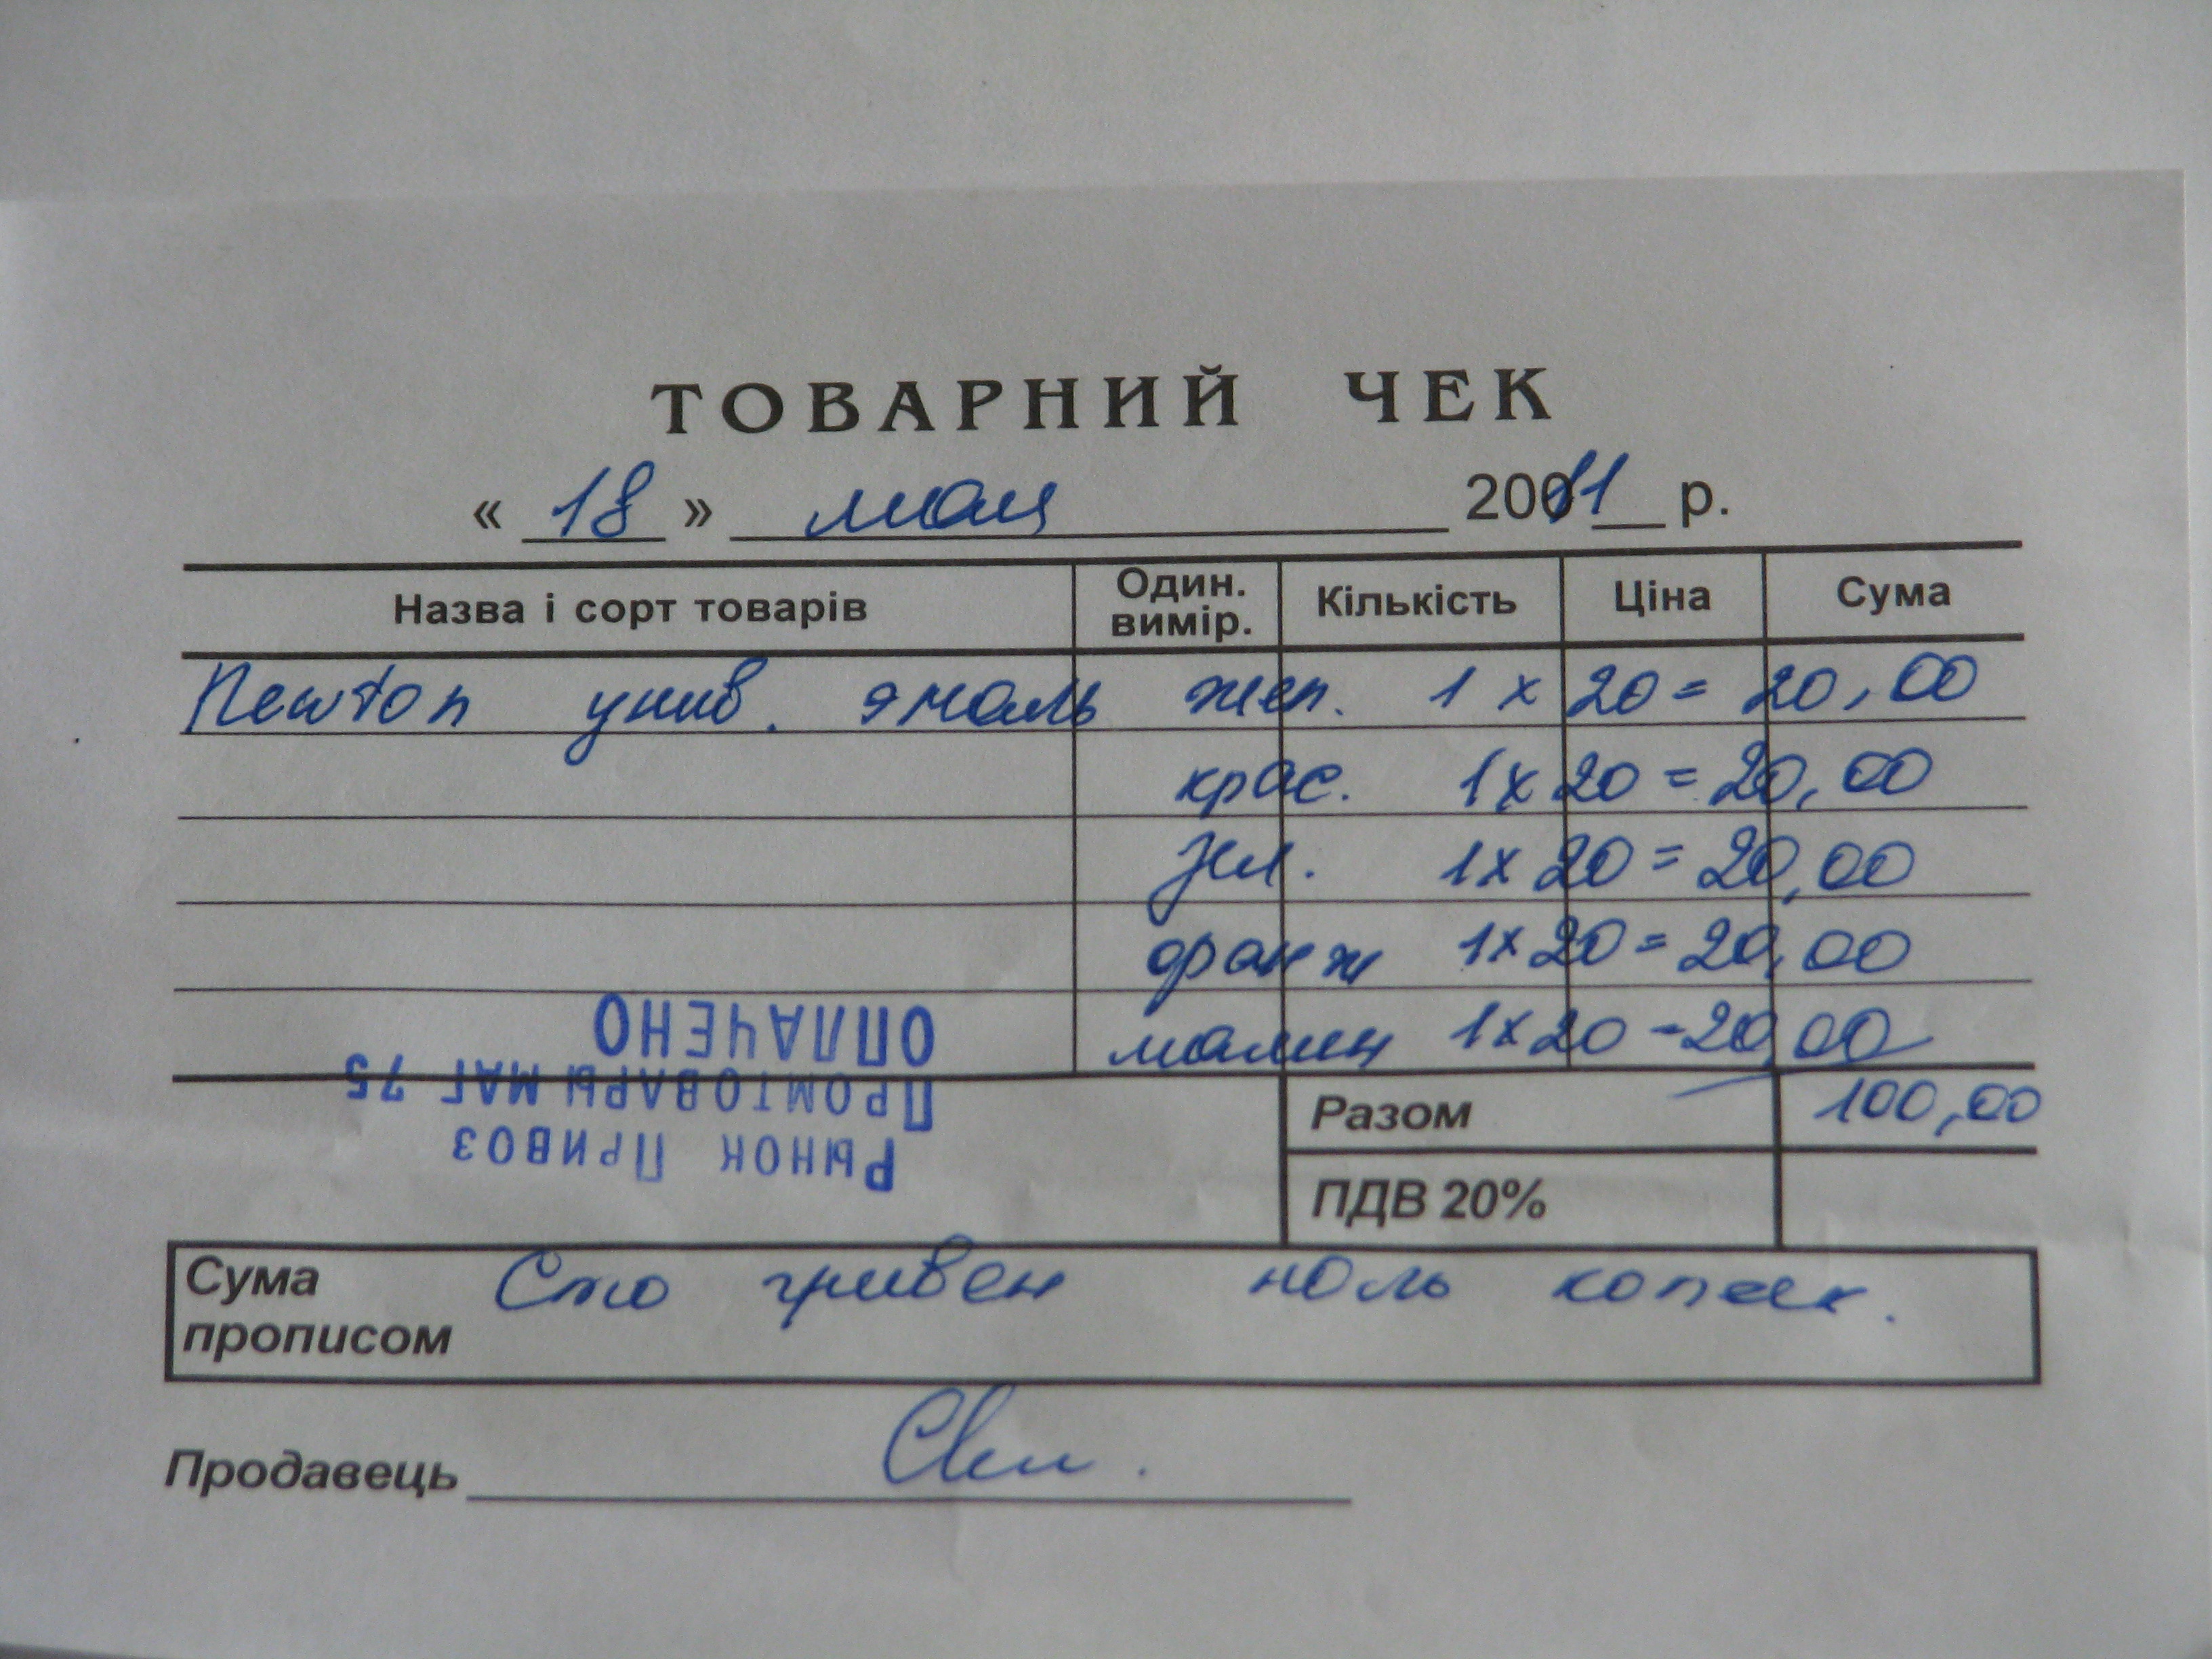 ТОВАРНИЙ ЧЕК
« 18 » мая 2011 р.
Назва і сорт товарів Один. вимір. Кількість Ціна Сума
Newton унив. эмаль жел. 1 x 20 = 20,00
крас. 1 x 20 = 20,00
зел. 1 x 20 = 20,00
оранж 1 x 20 = 20,00
малин 1 x 20 - 20,00
Разом 100,00
ПДВ 20%
РЫНОК ПРИВОЗ
ПРОМТОВАРЫ МАГ 75
ОПЛАЧЕНО
Сума прописом Сто гривен ноль копеек.
Продавець